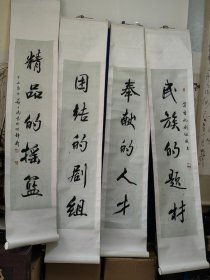 民族的题材
奉献的人才
团结的剧组
精品的摇篮